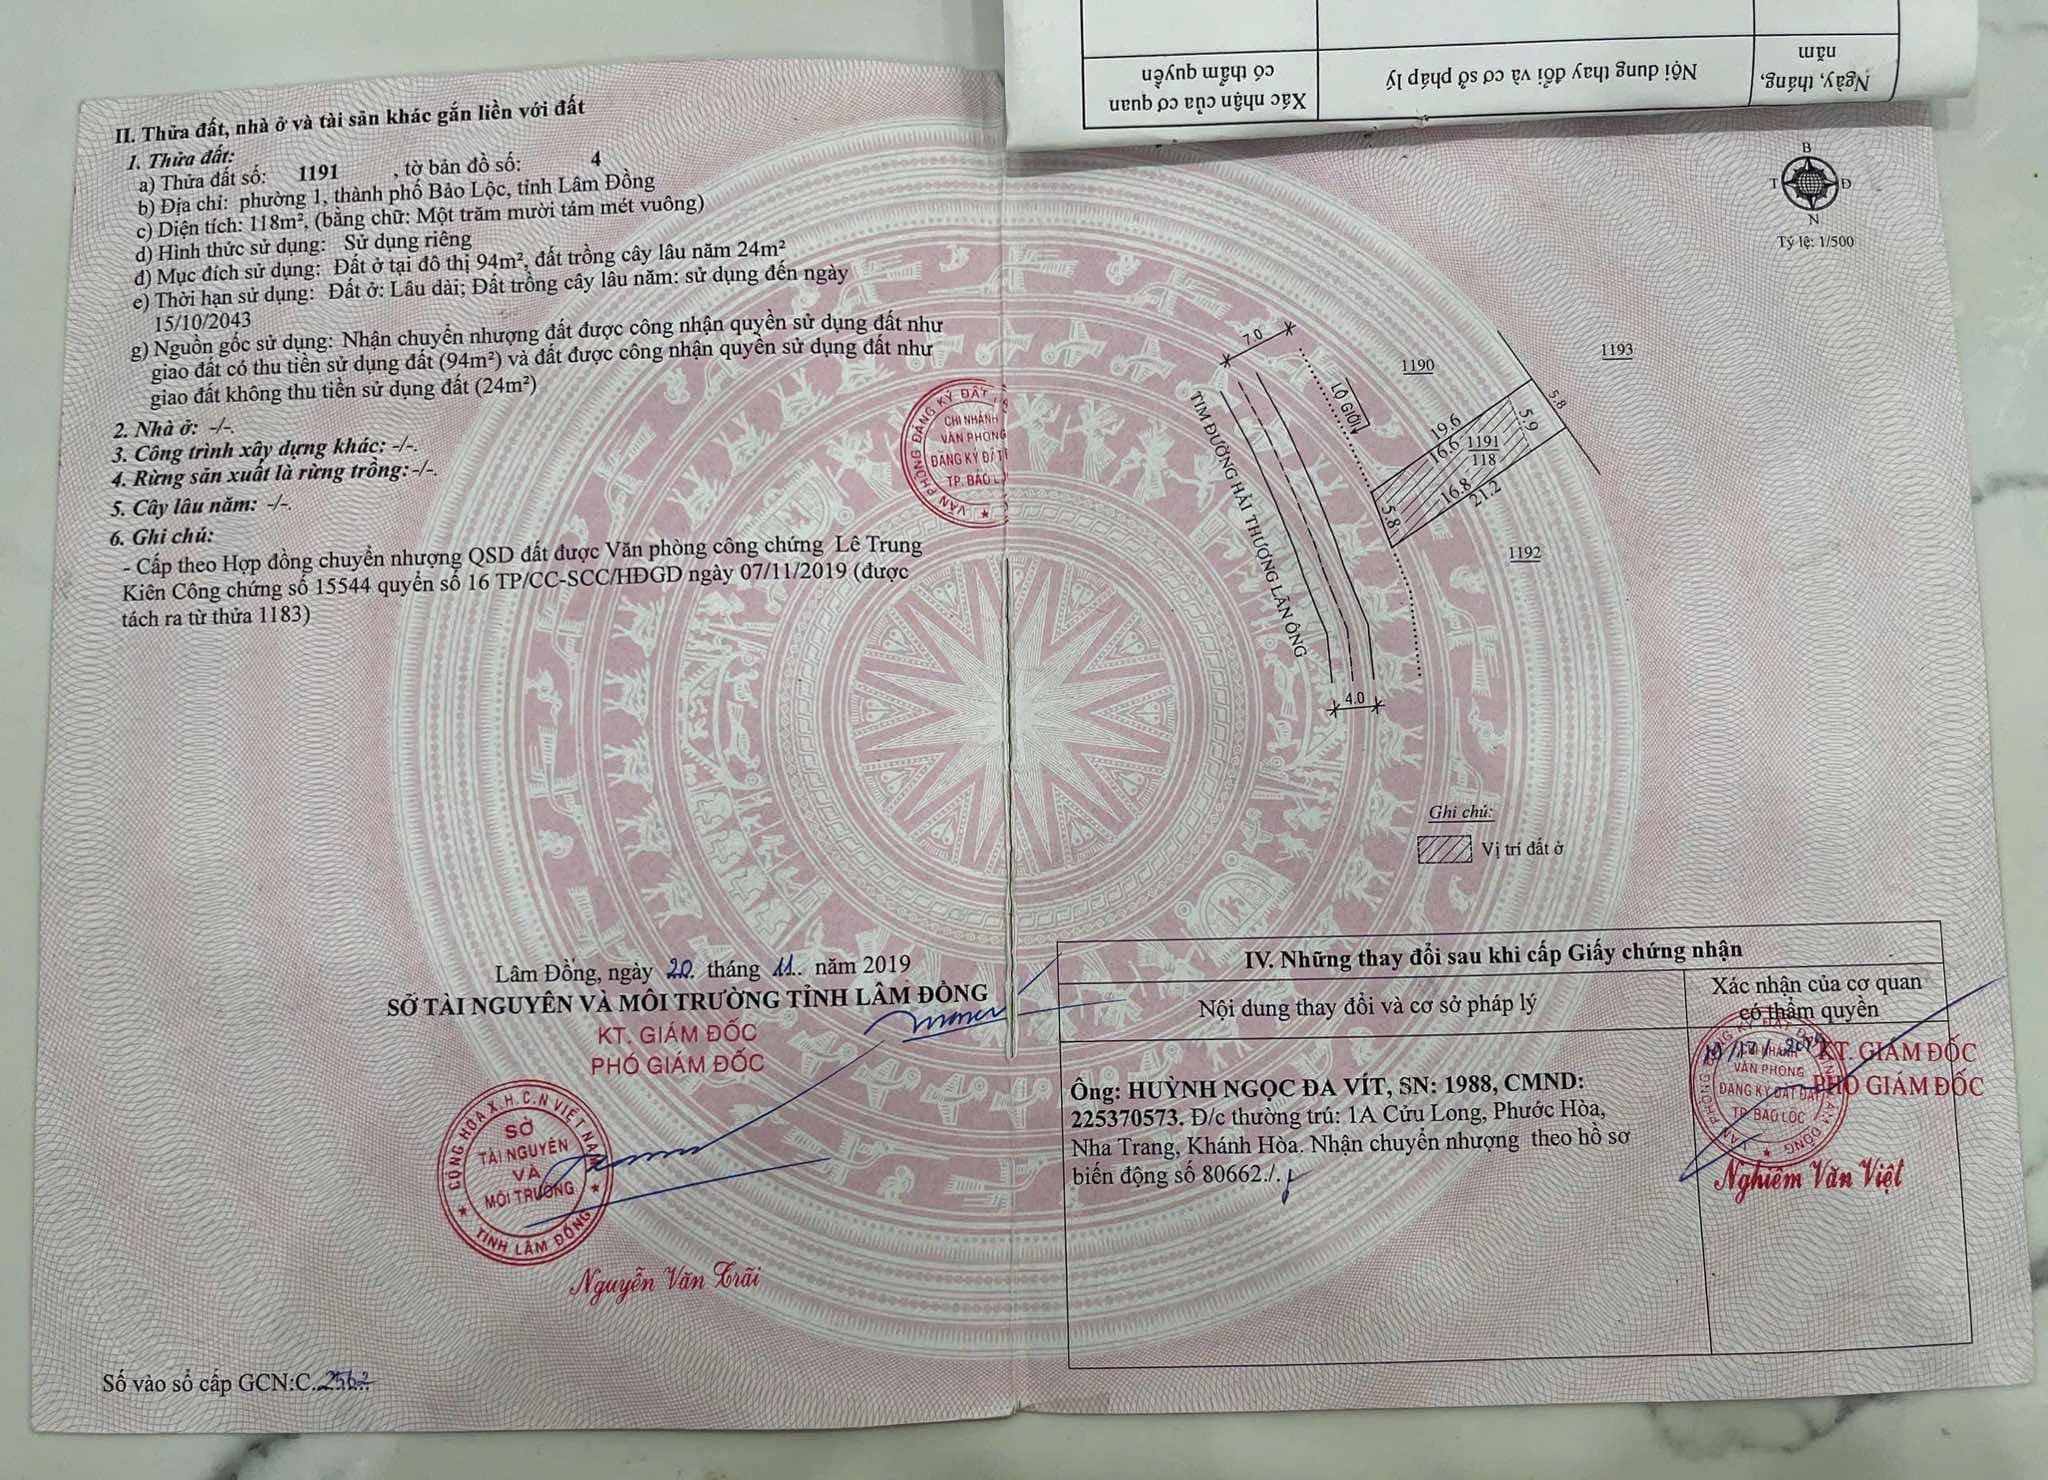 II. Thửa đất, nhà ở và tài sản khác gắn liền với đất
1. Thửa đất:
a) Thửa đất số: 1191 , tờ bản đồ số: 4
b) Địa chỉ: phường 1, thành phố Bảo Lộc, tỉnh Lâm Đồng
c) Diện tích: 118m², (bằng chữ: Một trăm mười tám mét vuông)
d) Hình thức sử dụng: Sử dụng riêng
đ) Mục đích sử dụng: Đất ở tại đô thị 94m², đất trồng cây lâu năm 24m²
e) Thời hạn sử dụng: Đất ở: Lâu dài; Đất trồng cây lâu năm: sử dụng đến ngày
15/10/2043
g) Nguồn gốc sử dụng: Nhận chuyển nhượng đất được công nhận quyền sử dụng đất như
giao đất có thu tiền sử dụng đất (94m²) và đất được công nhận quyền sử dụng đất như
giao đất không thu tiền sử dụng đất (24m²)
2. Nhà ở: -/-.
3. Công trình xây dựng khác: -/-.
4. Rừng sản xuất là rừng trồng: -/-.
5. Cây lâu năm: -/-.
6. Ghi chú:
- Cấp theo Hợp đồng chuyển nhượng QSD đất được Văn phòng công chứng Lê Trung
Kiên Công chứng số 15544 quyển số 16 TP/CC-SCC/HĐGD ngày 07/11/2019 (được
tách ra từ thửa 1183)
VĂN PHÒNG ĐĂNG KÝ ĐẤT
CHI NHÁNH
VĂN PHÒNG
ĐĂNG KÝ ĐẤT
TP. BẢO L
Lâm Đồng, ngày 20. tháng 11. năm 2019
SỞ TÀI NGUYÊN VÀ MÔI TRƯỜNG TỈNH LÂM ĐỒNG
KT. GIÁM ĐỐC
PHÓ GIÁM ĐỐC
CỘNG HÒA X.H.C.N VIỆT NAM
SỞ
TÀI NGUYÊN
VÀ
MÔI TRƯỜNG
TỈNH LÂM ĐỒNG
Nguyễn Văn Trãi
Số vào sổ cấp GCN:C.2562
Ngày, tháng, năm
Nội dung thay đổi và cơ sở pháp lý
Xác nhận của cơ quan
có thẩm quyền
B
T Đ
N
Tỷ lệ: 1/500
7.0
LỘ GIỚI
TIM ĐƯỜNG HẢI THƯỢNG LÃN ÔNG
4.0
1190
1193
1192
19.6
16.6
1191
118
16.8
21.2
5.8
5.9
5.8
Ghi chú:
Vị trí đất ở
IV. Những thay đổi sau khi cấp Giấy chứng nhận
Nội dung thay đổi và cơ sở pháp lý
Xác nhận của cơ quan
có thẩm quyền
Ông: HUỲNH NGỌC ĐA VÍT, SN: 1988, CMND:
225370573. Đ/c thường trú: 1A Cửu Long, Phước Hòa,
Nha Trang, Khánh Hòa. Nhận chuyển nhượng theo hồ sơ
biến động số 80662./.
KT. GIÁM ĐỐC
PHÓ GIÁM ĐỐC
CHI NHÁNH
VĂN PHÒNG
ĐĂNG KÝ ĐẤT ĐAI
TP. BẢO LỘC
Nghiêm Văn Việt